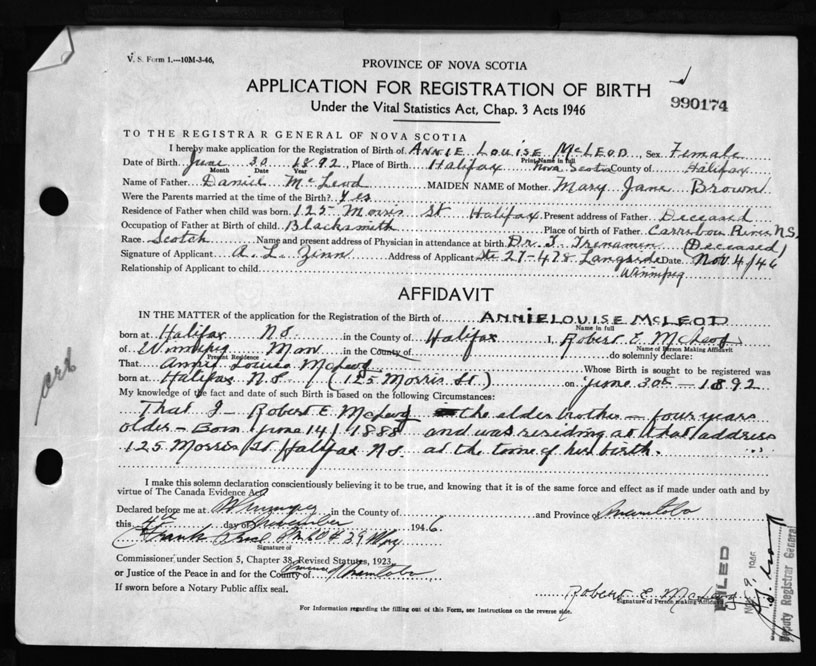 V. S. Form 1.—10M-3-46,
PROVINCE OF NOVA SCOTIA
APPLICATION FOR REGISTRATION OF BIRTH
990174
Under the Vital Statistics Act, Chap. 3 Acts 1946
TO THE REGISTRAR GENERAL OF NOVA SCOTIA
I hereby make application for the Registration of Birth of ANNIE LOUISE McLEOD, Sex Female
Print Name in full
Date of Birth June 30 1892, Place of Birth Halifax Nova Scotia County of Halifax
Month Date Year
Name of Father Daniel McLeod MAIDEN NAME of Mother Mary Jane Brown
Were the Parents married at the time of the Birth? Yes
Residence of Father when child was born 125 Morris St Halifax Present address of Father Deceased
Occupation of Father at Birth of child Blacksmith Place of birth of Father Carribou River N.S.
Race Scotch Name and present address of Physician in attendance at birth Dr. T. Trenaman (Deceased)
Signature of Applicant A. L. Zinn Address of Applicant Ste 27-478 Langside Date Nov 4/46
Winnipeg
Relationship of Applicant to child
AFFIDAVIT
IN THE MATTER of the application for the Registration of the Birth of ANNIE LOUISE McLEOD
Name in full
born at Halifax N.S. in the County of Halifax I, Robert E. McLeod
Name of Person Making Affidavit
of Winnipeg Man in the County of do solemnly declare:
Present Residence
That Annie Louise McLeod Whose Birth is sought to be registered was
born at Halifax N.S. (125 Morris St.) on June 30th — 1892
My knowledge of the fact and date of such Birth is based on the following Circumstances:
That I - Robert E. McLeod the elder brother - four years
older - Born June 14/1888 and was residing at that address
125 Morris St Halifax N.S. at the time of her birth.
I make this solemn declaration conscientiously believing it to be true, and knowing that it is of the same force and effect as if made under oath and by
virtue of The Canada Evidence Act.
Declared before me at Winnipeg in the County of and Province of Manitoba
this 4th day of November 1946
Frank
Signature of
Commissioner under Section 5, Chapter 38, Revised Statutes, 1923,
or Justice of the Peace in and for the County of Province of Manitoba
If sworn before a Notary Public affix seal.
Robert E. McLeod
Signature of Person Making Affidavit
For Information regarding the filling out of this Form, see Instructions on the reverse side.
FILED
Nov. 9, 1946
Deputy Registrar General